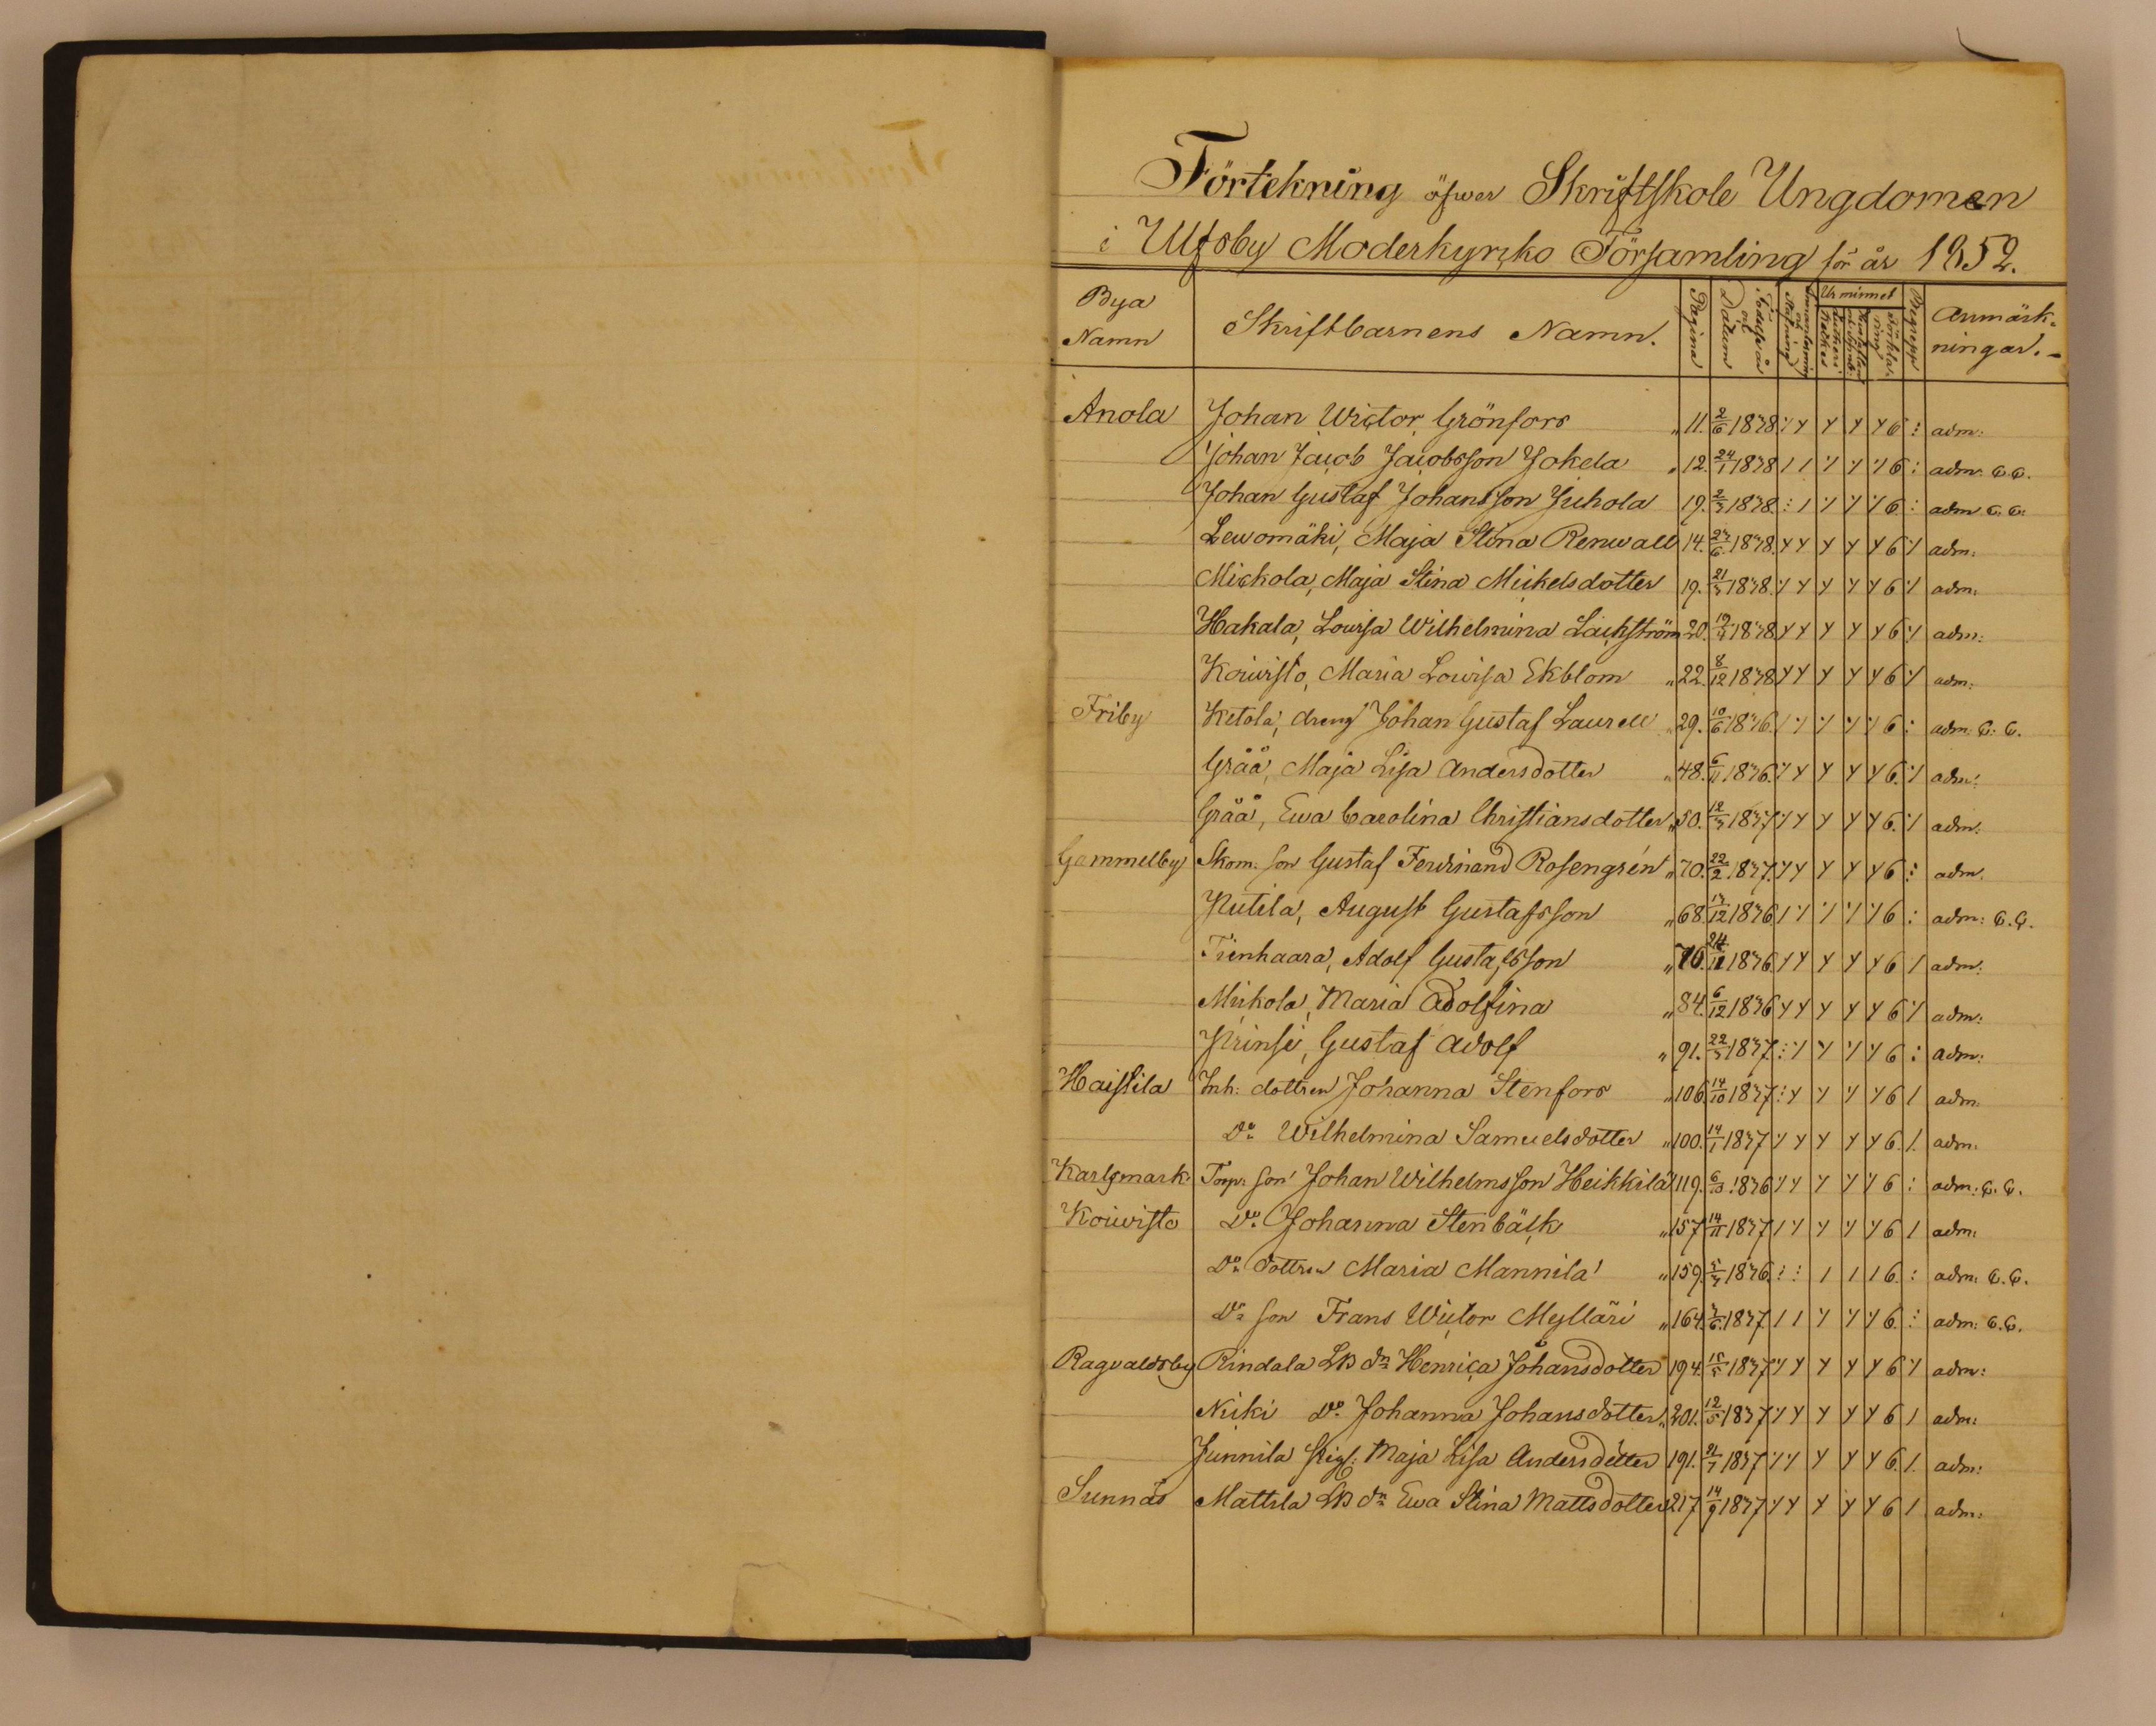 Förtekning öfwer Skriftskole Ungdomen
i Ulfsby Moderkyrko Församling för år 1852.
Bya Namn Skriftbarnens Namn. Pagina Datum och Födelse år Ur minnet Förklaring Begrepp Anmärkningar.
Anola Johan Wictor Grönfors " 11. 2/6 1838 adm:
Johan Jacob Jacobsson Jokela " 12. 24/1 1838 adm: C.C.
Johan Gustaf Johansson Juhola 19. 2/3 1838. adm C.C.
Lewomäki, Maja Stina Renwall 14. 27/6 1838. adm:
Mickola, Maja Stina Mickelsdotter 19. 21/3 1838. adm:
Hakala, Lowisa Wilhelmina Lackström 20. 1838 adm:
Koiwisto, Maria Lowisa Ekblom " 22. 8/12 1838 adm:
Friby Ketola, dreng Johan Gustaf Laurell " 29. 10/6 1836. adm: C. C.
Grää, Maja Lisa Andersdotter " 48. 6/11 1836. adm:
Grää, Ewa Carolina Christiansdotter " 50. 12/3 1837 adm:
Gammelby Skom. son Gustaf Ferdinand Rosengrén " 70. 22/2 1837. adm.
Kutila, August Gustafsson " 68. 1836 adm: C.C.
Tienhaara, Adolf Gustafsson " 76. 1836 adm:
Mickola, Maria Adolfina " 84. 6/12 1836 adm:
Prinsi, Gustaf Adolf " 91. 22/3 1837 adm:
Haistila Inh: dottren Johanna Stenfors " 106 14/10 1837 adm.
Do Wilhelmina Samuelsdotter " 100. 14/1 1837 adm.
Karlsmark Torp: son Johan Wilhelmsson Heikkilä 119. 6/10 1836 adm: C. C.
Koiwisto Do Johanna Stenbäck " 157 14/11 1837 adm:
Do dottren Maria Mannila " 159 1836. adm: C.C.
Do son Frans Wictor Mylläri " 164. 1837 adm: C.C.
Ragvaldsby Rindala LB dr Henrica Johansdotter 194. 15/5 1837 adm:
Niki Do Johanna Johansdotter " 201. 12/5 1837 adm:
Junnila Maja Lisa Andersdotter 191. 1837 adm:
Sunnäs Mattila LB dr Ewa Stina Mattsdotter 217 14/9 1837 adm: